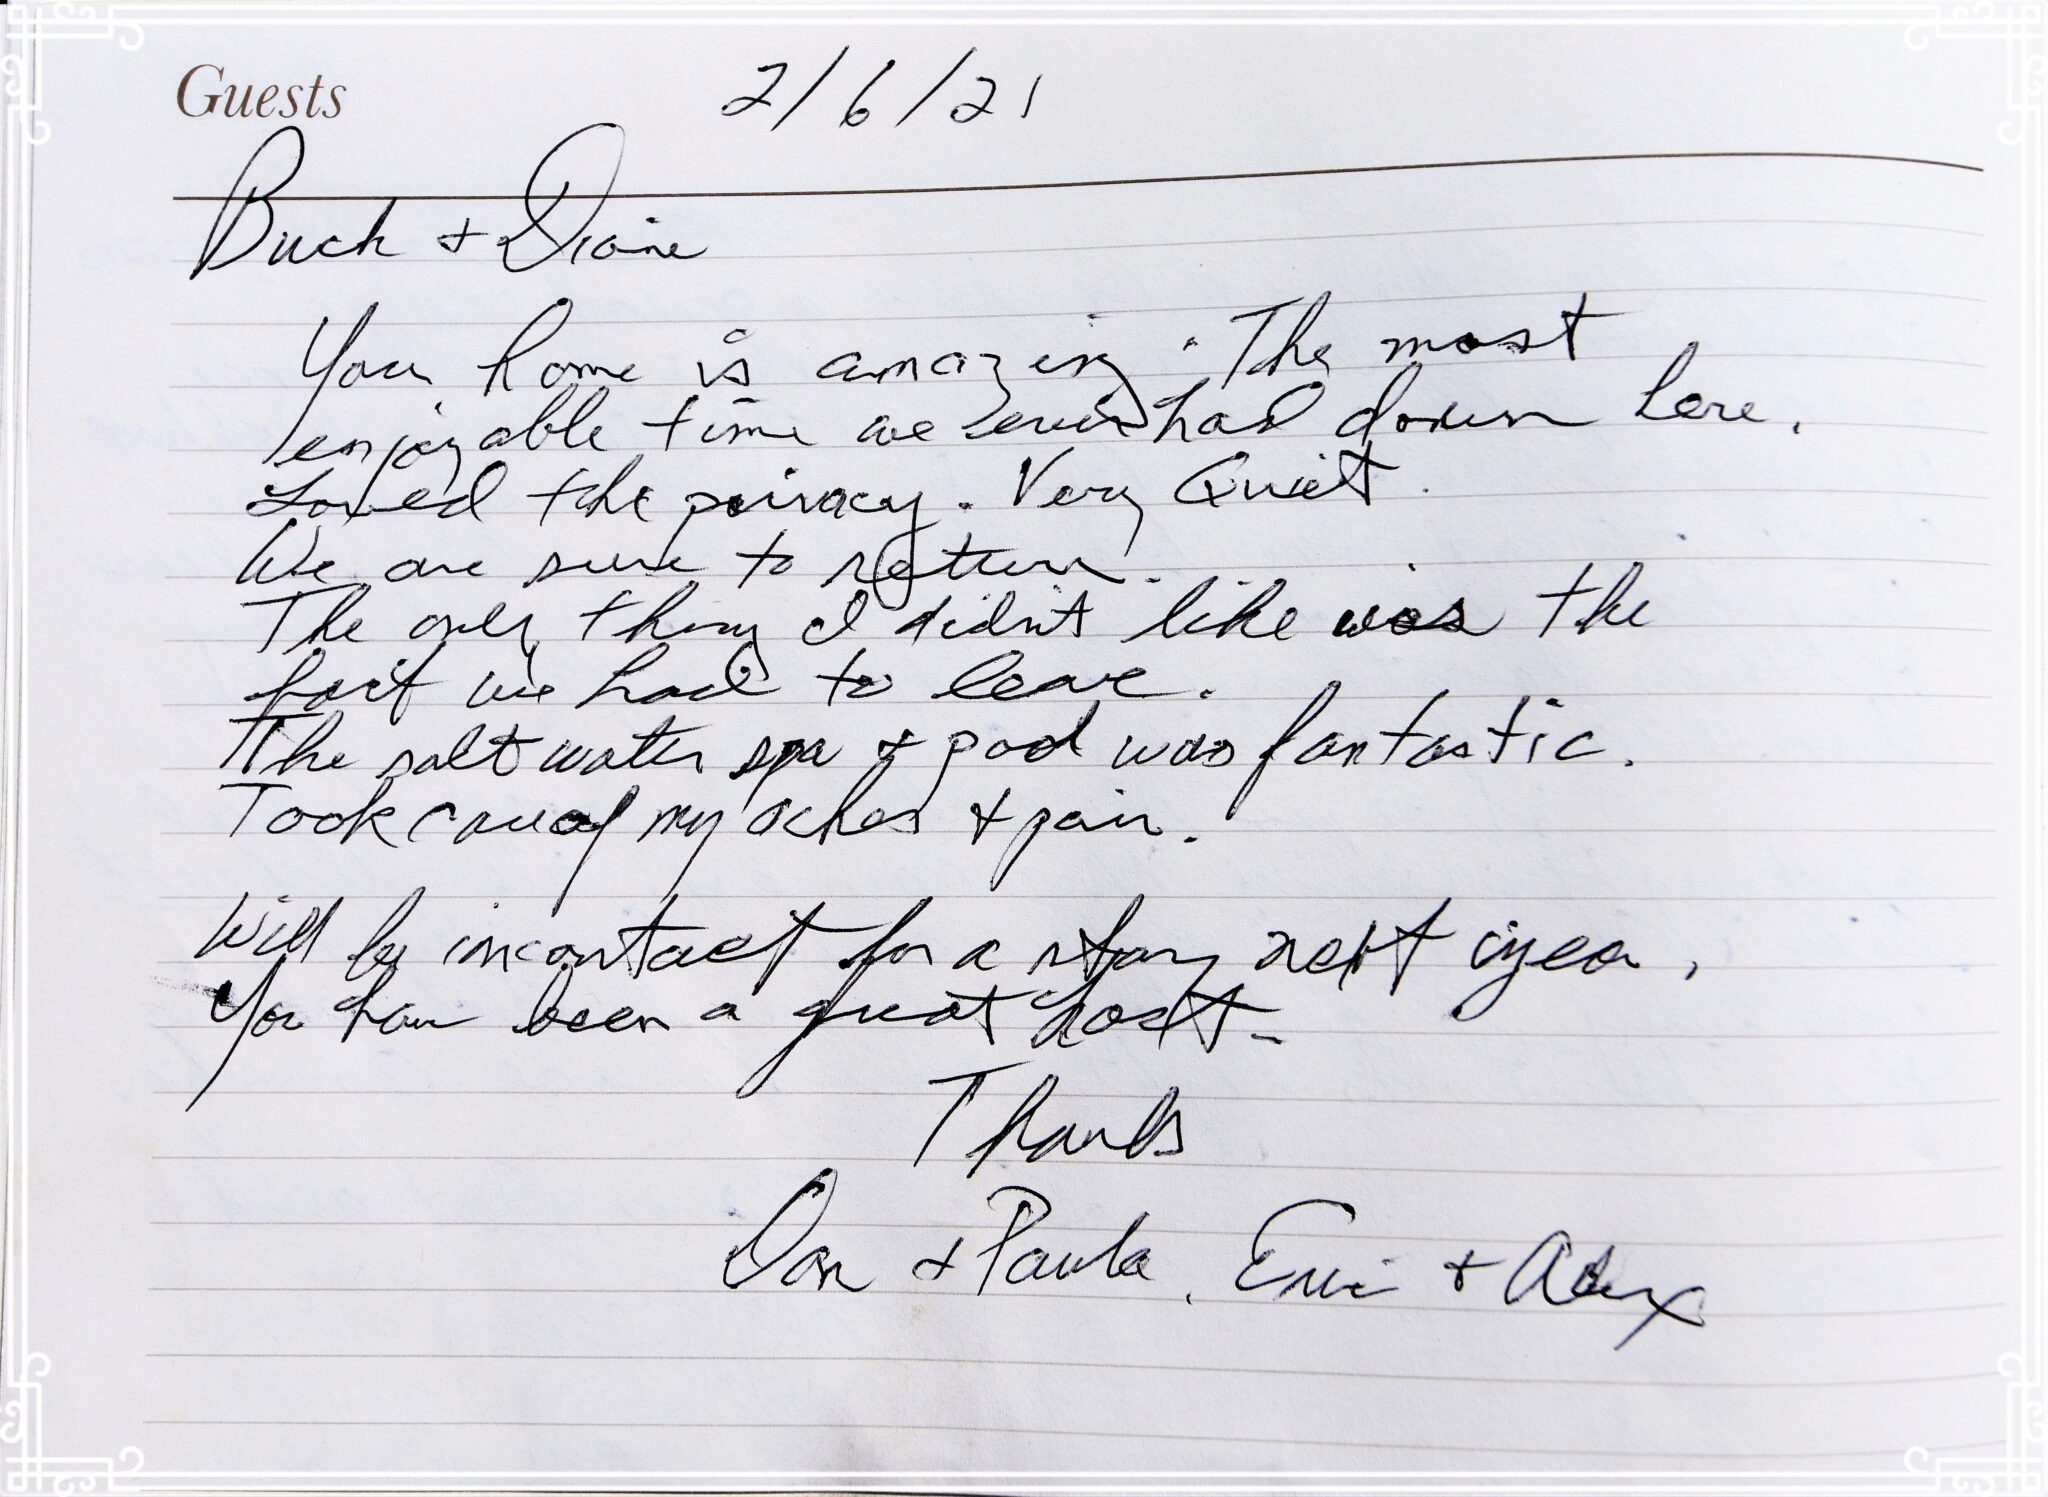 Guests 2/6/21
Buck + Diane
Your home is amazing. The most
enjoyable time we ever had down here.
Loved the privacy. Very Quiet.
We are sure to return.
The only thing I didn't like was the
fact we had to leave.
The salt water spa + pool was fantastic.
Took care of my aches + pain.
Will be in contact for a stay next year.
You have been a great host.
Thanks
Don + Paula, Eric + Alex